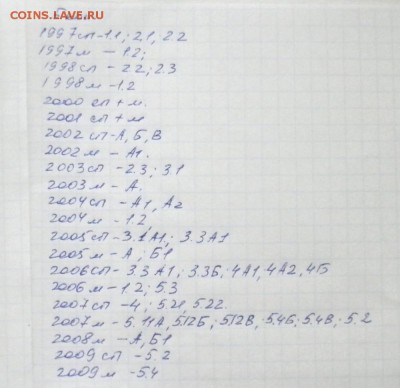 COINS.LAVE.RU
1997сп-1.1; 2.1, 2.2
1997м - 1.2;
1998сп - 2.2; 2.3
1998м - 1.2
2000 сп + м.
2001 сп + м
2002 сп-А, Б, В
2002 м - А1.
2003сп - 2.3; 3.1
2003м - А.
2004сп - А1, А2
2004м - 1.2
2005сп - 3.1А1; 3.3А1
2005м - А; Б1
2006сп- 3.3А1; 3.3Б; 4А1, 4А2, 4Б
2006м - 1.2; 5.3
2007сп - 4; 5.21, 5.22.
2007м - 5.11А, 5.12Б; 5.12В; 5.4Б; 5.4В; 5.2
2008м - А, Б1
2009сп - 5.2
2009м - 5.4